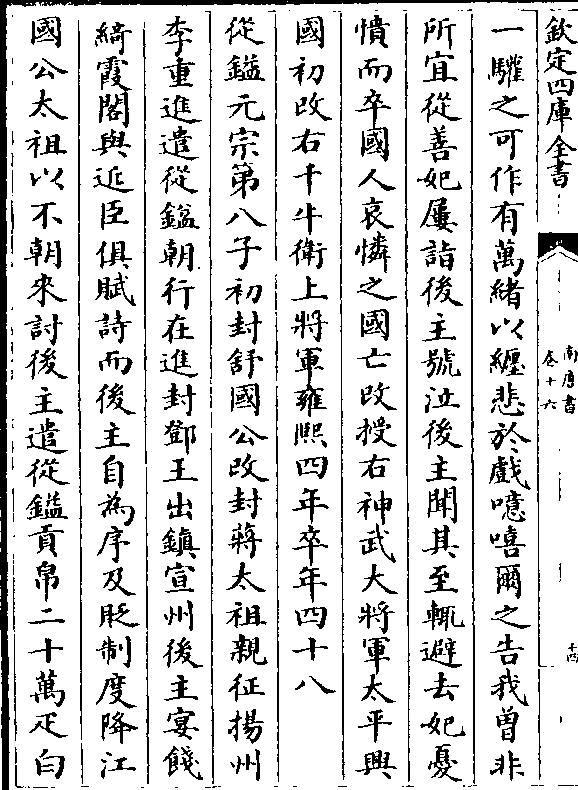 欽定四庫全書
南唐書
卷十六
十四
一驩之可作有萬緒以纏悲於戲噫嘻爾之告我曾非
所宜從善妃屢詣後主號泣後主聞其至輒避去妃憂
憤而卒國人哀憐之國亡改授右神武大將軍太平興
國初改右千牛衛上將軍雍熙四年卒年四十八
從鎰元宗第八子初封舒國公改封蔣太祖親征揚州
李重進遣從鎰朝行在進封鄧王出鎮宣州後主宴餞
綺霞閣與近臣俱賦詩而後主自為序及貶制度降江
國公太祖以不朝來討後主遣從鎰貢帛二十萬疋白